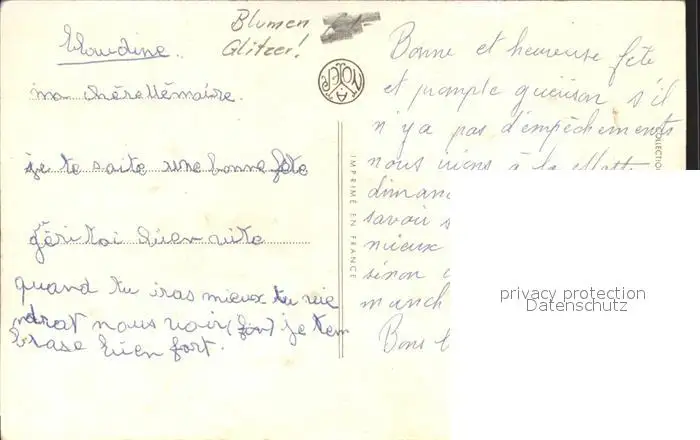 Blumen
Glitzer!
Claudine.
ma chère Mémaire.
je te saite une bonne fête
géri toi bien vite
quand tu iras mieux tu vie
ndrat nous voir (fon) je tem
brase bien fort.
IMPRIMÉ EN FRANCE
Bonne et heureuse fête
et prompte guérison s'il
n'y a pas d'empêchements
nous irions à la
diman
savoir s
mieux
sinon
manch
Bons
privacy protection
Datenschutz